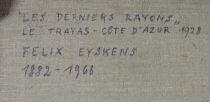 "LES DERNIERS RAYONS„
LE TRAYAS - CÔTE D'AZUR 1928
FELIX EYSKENS
1882 - 1968